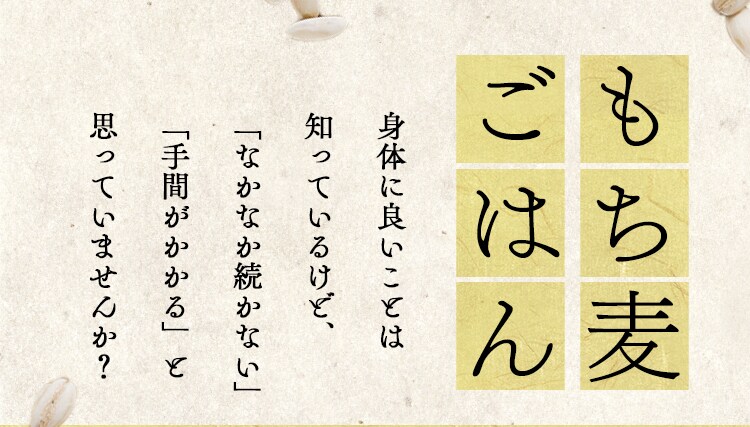 もち麦
ごはん
身体に良いことは
知っているけど、
「なかなか続かない」
「手間がかかる」と
思っていませんか？